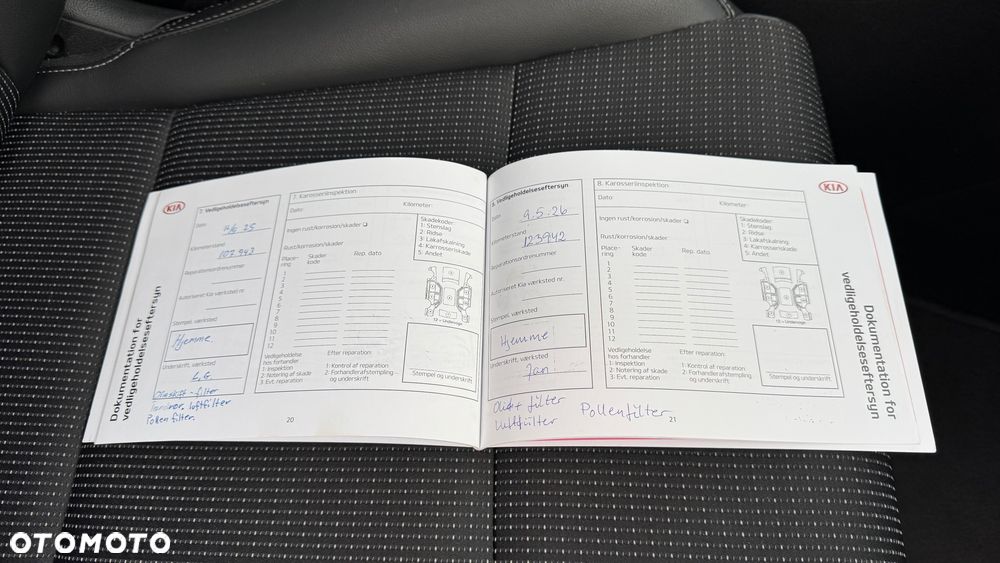 KIA
Dokumentation for
vedligeholdelseseftersyn
7. Vedligeholdelseseftersyn
Dato
25
Kilometerstand
107 943
Reparationsordrenummer
Autoriseret Kia værksted nr.
Stempel, værksted
Hjemme
Underskrift, værksted
Olieskift - filter
luftfilter
Pollenfilter
7. Karosseriinspektion
Dato:
Kilometer:
Ingen rust/korrosion/skader
Rust/korrosion/skader
Skadekoder:
1: Stenslag
2: Ridse
3: Lakafskalning
4: Karrosseriskade
5: Andet
Place-
ring
Skader
kode
Rep. dato
1
2
3
4
5
6
7
8
9
10
11
12
12 = Undervogn
Vedligeholdelse
hos forhandler
1: Inspektion
2: Notering af skade
3: Evt. reparation
Efter reparation:
1: Kontrol af reparation
2: Forhandlerafstempling
og underskrift
Stempel og underskrift
20
8. Vedligeholdelseseftersyn
Dato
9.5.26
Kilometerstand
123942
Reparationsordrenummer
Autoriseret Kia værksted nr.
Stempel, værksted
Hjemme
Underskrift, værksted
Jan
filter
Luftfilter
Pollenfilter
8. Karosseriinspektion
Dato:
Kilometer:
Ingen rust/korrosion/skader
Rust/korrosion/skader
Skadekoder:
1: Stenslag
2: Ridse
3: Lakafskalning
4: Karrosseriskade
5: Andet
Place-
ring
Skader
kode
Rep. dato
1
2
3
4
5
6
7
8
9
10
11
12
12 = Undervogn
Vedligeholdelse
hos forhandler
1: Inspektion
2: Notering af skade
3: Evt. reparation
Efter reparation:
1: Kontrol af reparation
2: Forhandlerafstempling
og underskrift
Stempel og underskrift
21
KIA
Dokumentation for
vedligeholdelseseftersyn
OTOMOTO